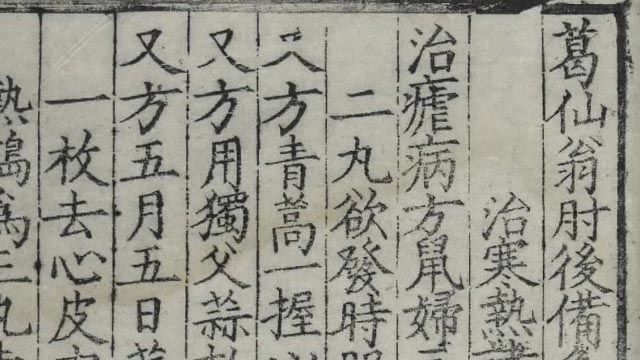 葛仙翁肘後備
治寒熱
治瘧病方鼠婦
二丸欲發時
又方青蒿一握
又方用獨父蒜
又方五月五日
一枚去心皮
熱搗為三丸